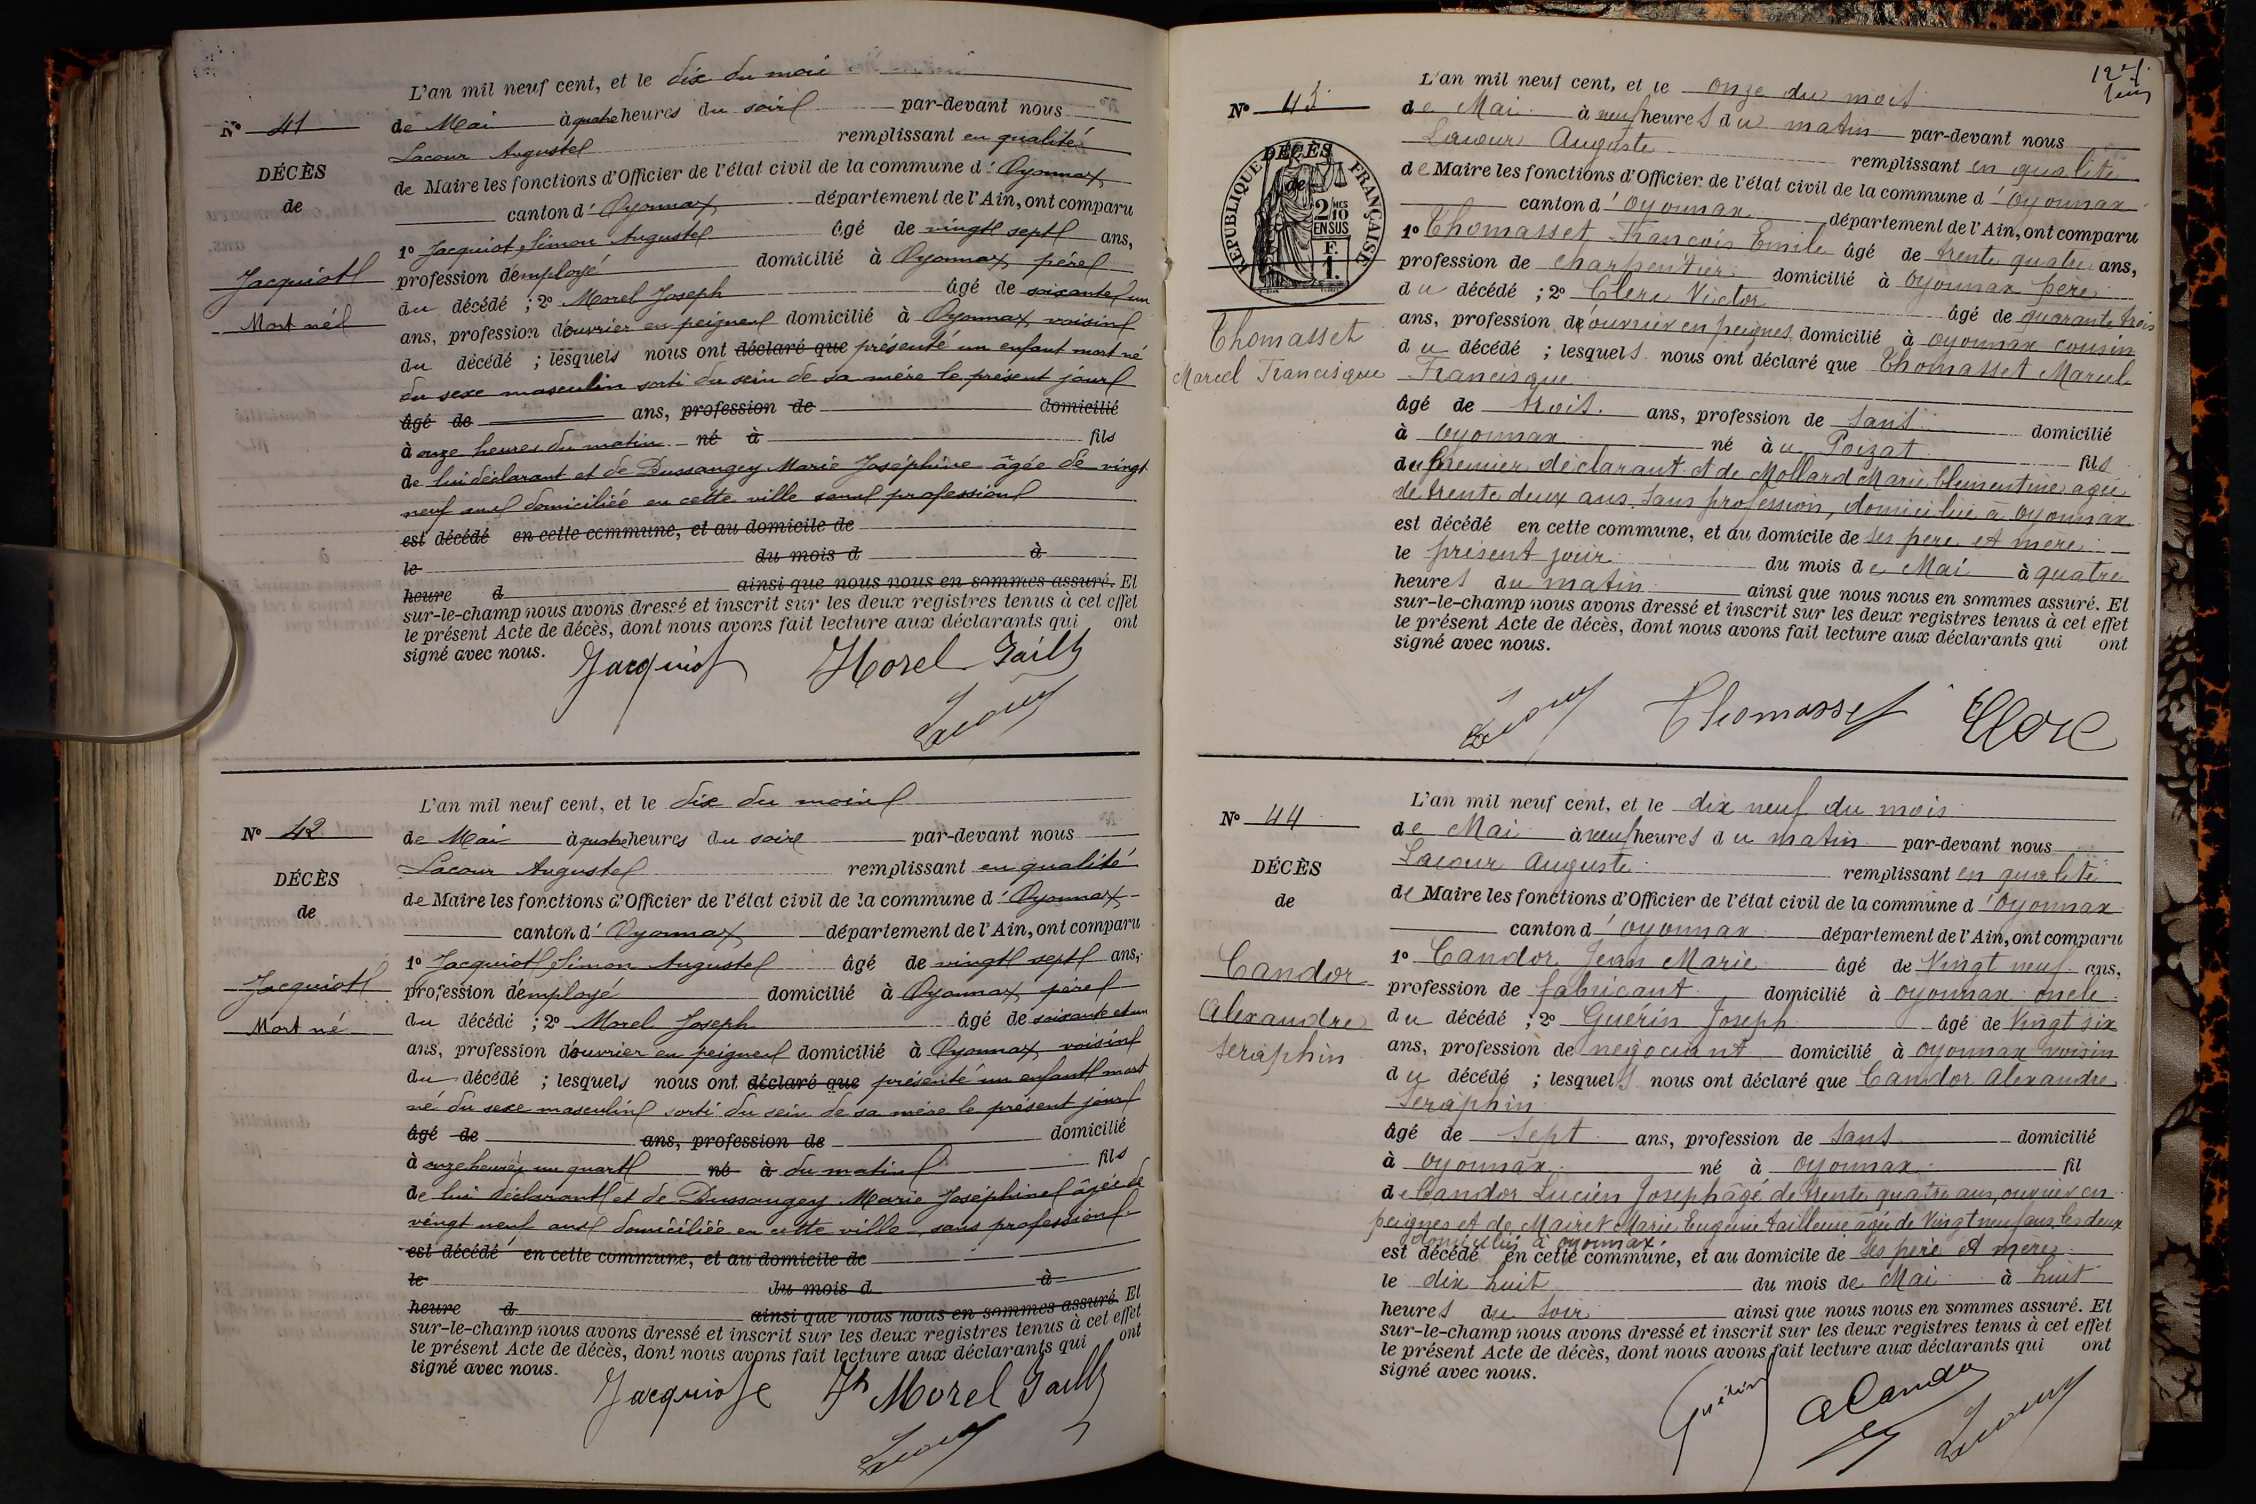 L'an mil neuf cent, et le dix du moi
N° 41
de Mai à quatre heures du soir par-devant nous
Lacour Auguste remplissant en qualité
DÉCÈS
de Maire les fonctions d'Officier de l'état civil de la commune d' Oyonnax
de
canton d' Oyonnax département de l'Ain, ont comparu
1° Jacquiot Simon Auguste âgé de vingt sept ans,
Jacquiot
profession d'employé domicilié à Oyonnax, père
Mort né
du décédé ; 2° Morel Joseph âgé de soixante et un
ans, profession d'ouvrier en peignes domicilié à Oyonnax, voisin
du décédé ; lesquels nous ont déclaré que présenté un enfant mort né
du sexe masculin sorti du sein de sa mère le présent jour
âgé de ans, profession de domicilié
à onze heures du matin né à fils
de lui déclarant et de Dussangey Marie Joséphine âgée de vingt
neuf ans domiciliée en cette ville sans profession
est décédé en cette commune, et au domicile de
le du mois d à
heure d ainsi que nous nous en sommes assuré. Et
sur-le-champ nous avons dressé et inscrit sur les deux registres tenus à cet effet
le présent Acte de décès, dont nous avons fait lecture aux déclarants qui ont
signé avec nous.
Jacquiot Morel
Lacour
L'an mil neuf cent, et le dix du mois
N° 42
de Mai à quatre heures du soir par-devant nous
Lacour Auguste remplissant en qualité
DÉCÈS
de Maire les fonctions d'Officier de l'état civil de la commune d' Oyonnax
de
canton d' Oyonnax département de l'Ain, ont comparu
1° Jacquiot Simon Auguste âgé de vingt sept ans,
Jacquiot
profession d'employé domicilié à Oyonnax, père
Mort né
du décédé ; 2° Morel Joseph âgé de soixante et un
ans, profession d'ouvrier en peignes domicilié à Oyonnax, voisin
du décédé ; lesquels nous ont déclaré que présenté un enfant mort
né du sexe masculin sorti du sein de sa mère le présent jour
âgé de ans, profession de domicilié
à onze heures un quart né à du matin fils
de lui déclarant et de Dussangey Marie Joséphine âgée de
vingt neuf ans domiciliée en cette ville, sans profession
est décédé en cette commune, et au domicile de
le du mois d à
heure d ainsi que nous nous en sommes assuré. Et
sur-le-champ nous avons dressé et inscrit sur les deux registres tenus à cet effet
le présent Acte de décès, dont nous avons fait lecture aux déclarants qui ont
signé avec nous.
Jacquiot Morel
Lacour
L'an mil neuf cent, et le onze du mois
N° 43
de Mai à neuf heures du matin par-devant nous
Lacour Auguste remplissant en qualité
DÉCÈS
de
RÉPUBLIQUE FRANÇAISE
2/10 MES
EN SUS
F.
1.
de Maire les fonctions d'Officier de l'état civil de la commune d' Oyonnax
canton d' Oyonnax département de l'Ain, ont comparu
1° Thomasset François Emile âgé de trente quatre ans,
profession de charpentier domicilié à Oyonnax père
du décédé ; 2° Clerc Victor âgé de quarante trois
ans, profession d'ouvrier en peignes domicilié à Oyonnax cousin
Thomasset
du décédé ; lesquels nous ont déclaré que Thomasset Marcel
Marcel Francisque
Francisque
âgé de trois ans, profession de sans domicilié
à Oyonnax né à u Poizat fils
du premier déclarant et de Mollard Marie Clementine agée
de trente deux ans, sans profession, domiciliée a Oyonnax
est décédé en cette commune, et au domicile de ses pere et mere
le présent jour du mois de Mai à quatre
heures du matin ainsi que nous nous en sommes assuré. Et
sur-le-champ nous avons dressé et inscrit sur les deux registres tenus à cet effet
le présent Acte de décès, dont nous avons fait lecture aux déclarants qui ont
signé avec nous.
Lacour Thomasset Clerc
L'an mil neuf cent, et le dix neuf du mois
N° 44
de Mai à neuf heures du matin par-devant nous
Lacour Auguste remplissant en qualité
DÉCÈS
de Maire les fonctions d'Officier de l'état civil de la commune d' Oyonnax
de
canton d' Oyonnax département de l'Ain, ont comparu
1° Candor Jean Marie âgé de Vingt neuf ans,
Candor
profession de fabricant domicilié à Oyonnax oncle
Alexandre
du décédé ; 2° Guérin Joseph âgé de Vingt six
Seraphin
ans, profession de négociant domicilié à Oyonnax voisin
du décédé ; lesquels nous ont déclaré que Candor Alexandre
Seraphin
âgé de sept ans, profession de sans domicilié
à Oyonnax né à Oyonnax fil
de Candor Lucien Joseph âgé de trente quatre ans, ouvrier en
peignes et de Mairet Marie Eugénie tailleuse âgée de Vingt neuf ans, les deux
domiciliés à Oyonnax
est décédé en cette commune, et au domicile de ses père et mère
le dix huit du mois de Mai à huit
heures du soir ainsi que nous nous en sommes assuré. Et
sur-le-champ nous avons dressé et inscrit sur les deux registres tenus à cet effet
le présent Acte de décès, dont nous avons fait lecture aux déclarants qui ont
signé avec nous.
Guérin Candor Lacour